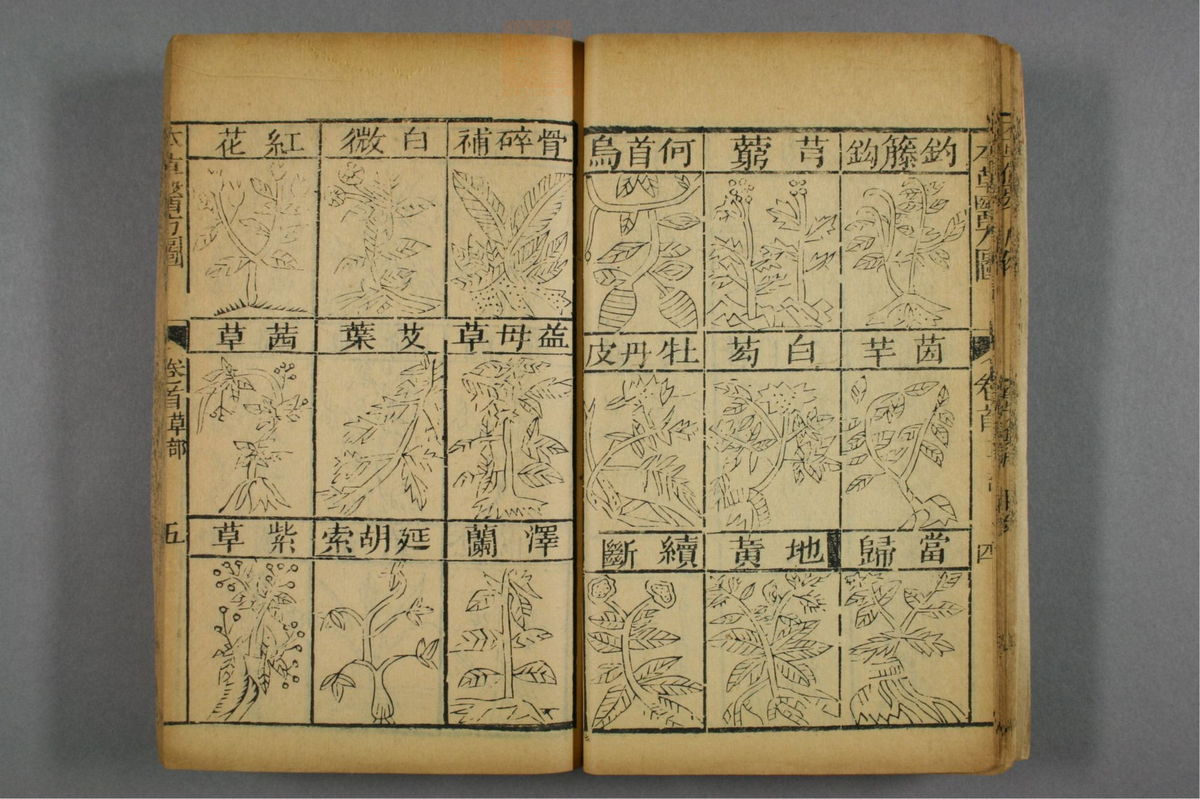 釣籐鈎
芎藭
何首烏
茵芋
白芍
牡丹皮
當歸
地黃
續斷
四
骨碎補
白微
紅花
益母草
艾葉
茜草
澤蘭
延胡索
紫草
卷首 草部
五